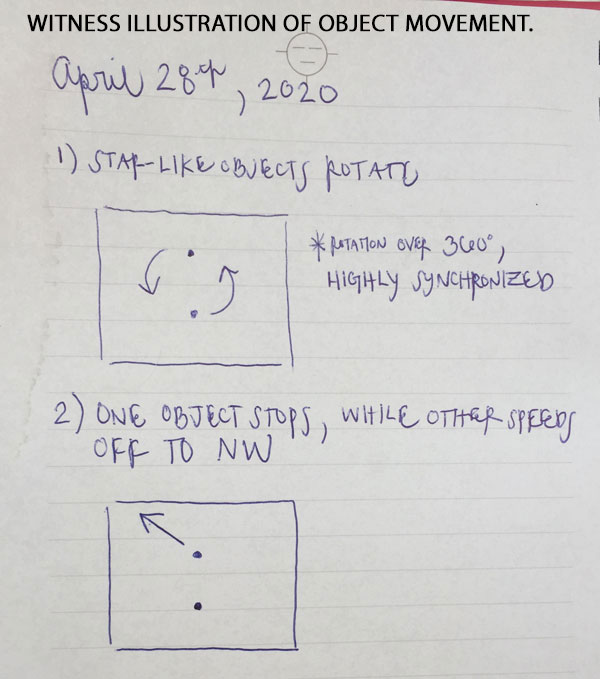 WITNESS ILLUSTRATION OF OBJECT MOVEMENT.
April 28th, 2020
1) STAR-LIKE OBJECTS ROTATE
*ROTATION OVER 360°,
HIGHLY SYNCHRONIZED
2) ONE OBJECT STOPS, WHILE OTHER SPEEDS
OFF TO NW